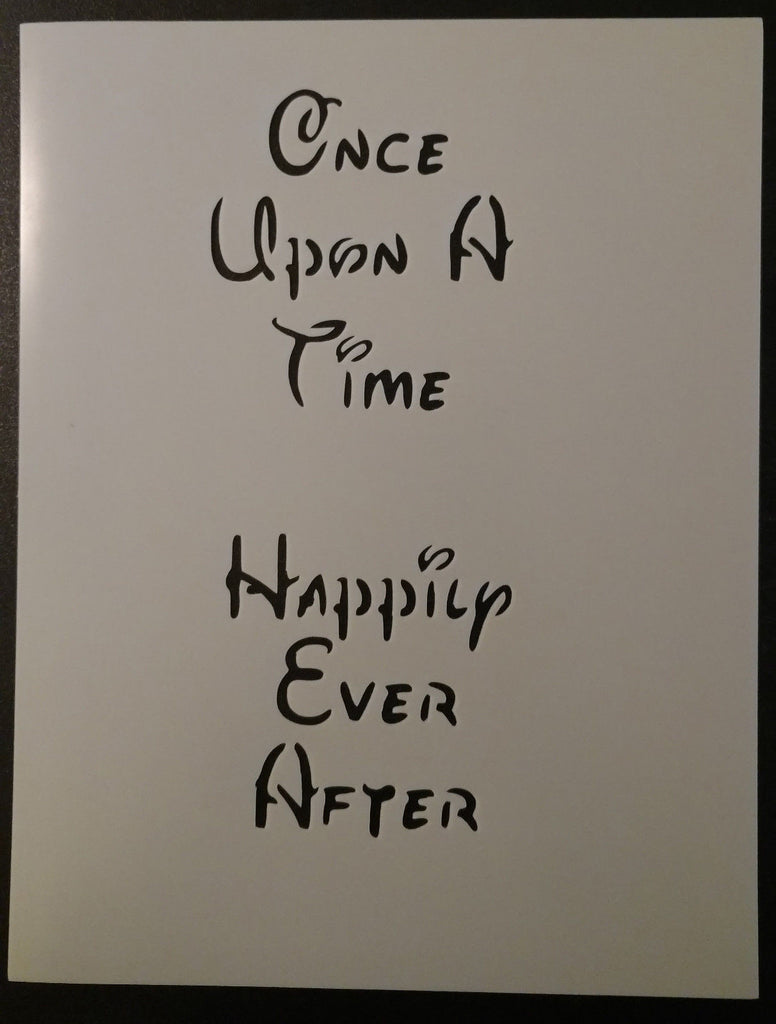 Once
Upon A
Time
Happily
Ever
After